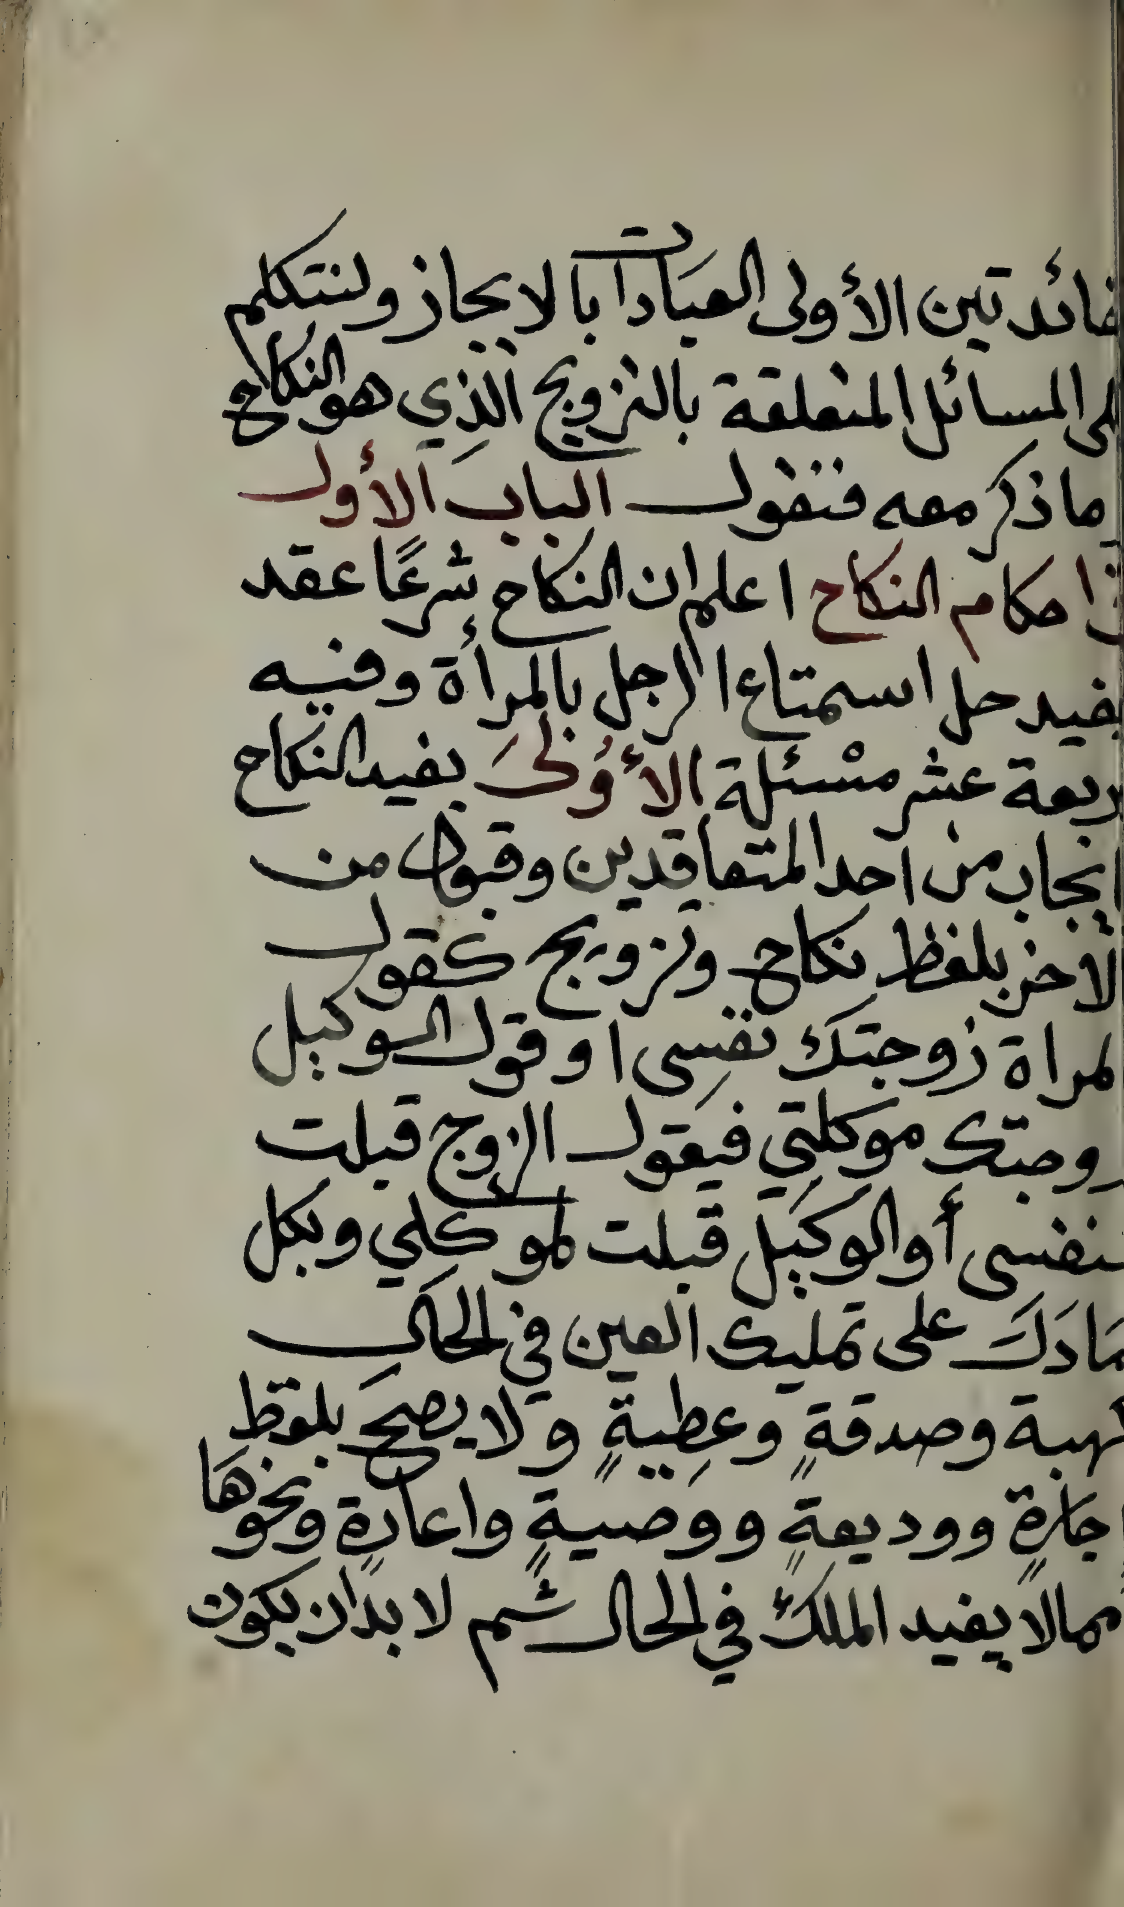 فائدتين الأولى العبادات بالايجاز ولنتكلم
على المسائل المتعلقة بالتزويج الذي هو النكاح
ما ذكر معه فنقول الباب الأول
في احكام النكاح اعلم ان النكاح شرعًا عقد
يفيد حل استمتاع الرجل بالمرأة وفيه
ربعة عشر مسْئلة الأوُلىَ يفيد النكاح
إيجاب من احد المتعاقدين وقبول من
لآخر بلفظ نكاح وتزويج كقول
لمراة زوجتك نفسِى او قول الوكيل
زوجتك موكلتي فيقول الزوج قبلت
لنفسى أو الوكيل قبلت لموكلي وبكل
مَا دَلَّ على تمليك العين في الحال
كهبة وصدقةٍ وعطِيةٍ ولا يصح بلفظ
اجارةٍ ووديعةٍ ووصيةٍ واعارةٍ ونحوهَا
مما لا يفيد الملك في الحال ثم لا بد ان يكون